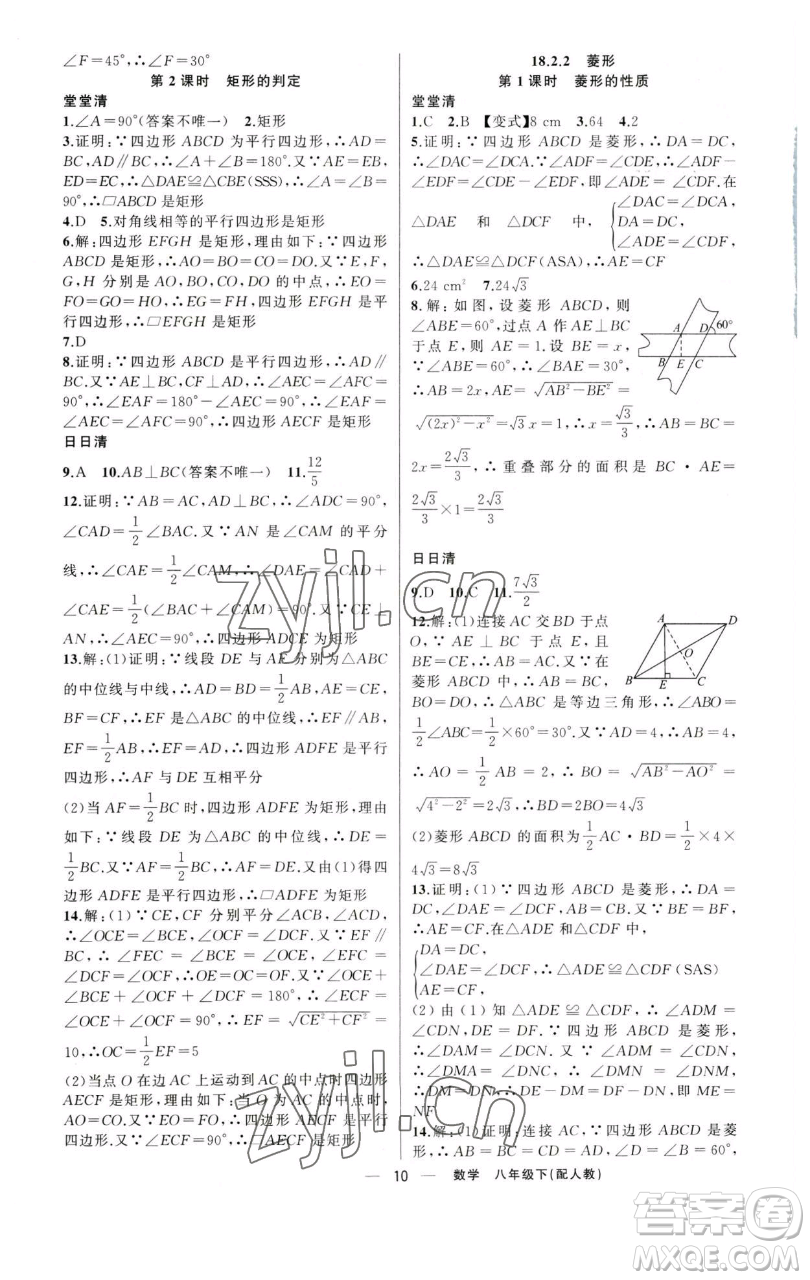 ∠F=45°,∴∠F=30°
第2课时 矩形的判定
堂堂清
1.∠A=90°(答案不唯一) 2.矩形
3.证明:∵四边形 ABCD 为平行四边形,∴AD=
BC,AD∥BC,∴∠A+∠B=180°.又∵AE=EB,
ED=EC,∴△DAE≌△CBE(SSS),∴∠A=∠B=
90°,∴□ABCD 是矩形
4.D 5.对角线相等的平行四边形是矩形
6.解:四边形 EFGH 是矩形,理由如下:∵四边形
ABCD 是矩形,∴AO=BO=CO=DO.又∵E,F,
G,H 分别是 AO,BO,CO,DO 的中点,∴EO=
FO=GO=HO,∴EG=FH,∴四边形 EFGH 是平
行四边形,∴□EFGH 是矩形
7.D
8.证明:∵四边形 ABCD 是平行四边形,∴AD∥
BC.又∵AE⊥BC,CF⊥AD,∴∠AEC=∠AFC=
90°,∴∠EAF=180°-∠AEC=90°,∴∠EAF=
∠AEC=∠AFC=90°,∴四边形 AECF 是矩形
日日清
9.A 10.AB⊥BC(答案不唯一) 11.12/5
12.证明:∵AB=AC,AD⊥BC,∴∠ADC=90°,
∠CAD=1/2∠BAC.又∵AN 是∠CAM 的平分
线,∴∠CAE=1/2∠CAM,∴∠DAE=∠CAD+
∠CAE=1/2(∠BAC+∠CAM)=90°.又∵CE⊥
AN,∴∠AEC=90°,∴四边形 ADCE 为矩形
13.解:(1)证明:∵线段 DE 与 AF 分别为△ABC
的中位线与中线,∴AD=BD=1/2AB,AE=CE,
BF=CF,∴EF 是△ABC 的中位线,∴EF∥AB,
EF=1/2AB,∴EF=AD,∴四边形 ADFE 是平行
四边形,∴AF 与 DE 互相平分
(2)当 AF=1/2BC 时,四边形 ADFE 是矩形,理由
如下:∵线段 DE 为△ABC 的中位线,∴DE=
1/2BC.又∵AF=1/2BC,∴AF=DE.又由(1)得四
边形 ADFE 是平行四边形,∴□ADFE 为矩形
14.解:(1)∵CE,CF 分别平分∠ACB,∠ACD,
∴∠OCE=∠BCE,∠OCF=∠DCF.又∵EF∥
BC,∴∠FEC=∠BCE=∠OCE,∠EFC=
∠DCF=∠OCF,∴OE=OC=OF.又∵∠OCE+
∠BCE+∠OCF+∠DCF=180°,∴∠ECF=
∠OCE+∠OCF=90°,∴EF=√(CE²+CF²)=
10,∴OC=1/2EF=5
(2)当点 O 在边 AC 上运动到 AC 的中点时四边形
AECF 是矩形,理由如下:∵当 O 为 AC 的中点时,
AO=CO.又∵EO=FO,∴四边形 AECF 是平行
四边形.又∵∠ECF=90°,∴□AECF 是矩形
18.2.2 菱形
第1课时 菱形的性质
堂堂清
1.C 2.B 【变式】8 cm 3.64 4.2
5.证明:∵四边形 ABCD 是菱形,∴DA=DC,
∴∠DAC=∠DCA.∵∠ADF=∠CDE,∴∠ADF-
∠EDF=∠CDE-∠EDF,即∠ADE=∠CDF.在
△DAE 和 △DCF 中,
∠DAC=∠DCA,
DA=DC,
∠ADE=∠CDF,
∴△DAE≌△DCF(ASA),∴AE=CF
6.24 cm² 7.24√3
8.解:如图,设菱形 ABCD,则
∠ABE=60°,过点 A 作 AE⊥BC
于点 E,则 AE=1.设 BE=x,
∵∠ABE=60°,∴∠BAE=30°,
∴AB=2x,AE=√(AB²-BE²)=
√((2x)²-x²)=√3x=1,∴x=√3/3,∴AB=BC=
2x=2√3/3,∴重叠部分的面积是 BC·AE=
2√3/3×1=2√3/3
A D 60° B E C
日日清
9.D 10.C 11.7√3/2
12.解:(1)连接 AC 交 BD 于点
O,∵AE⊥BC 于点 E,且
BE=CE,∴AB=AC.又∵在
菱形 ABCD 中,AB=BC=AD,
BO=DO,∴△ABC 是等边三角形,∴∠ABO=
1/2∠ABC=1/2×60°=30°.又∵AD=4,∴AB=4,
∴AO=1/2AB=2,∴BO=√(AB²-AO²)=
√(4²-2²)=2√3,∴BD=2BO=4√3
A D O B E C
(2)菱形 ABCD 的面积为1/2AC·BD=1/2×4×
4√3=8√3
13.证明:(1)∵四边形 ABCD 是菱形,∴DA=
DC=AB=CB,∠DAE=∠DCF.又∵BE=BF,∴AE=CF.在△ADE 和△CDF 中,
DA=DC,
∠DAE=∠DCF,∴△ADE≌△CDF(SAS)
AE=CF,
(2)由(1)知△ADE≌△CDF,∴∠ADM=
∠CDN.∵四边形 ABCD 是菱形,∴AD=CD,
∴∠DAM=∠DCN.又∵∠DMA=180°-
∠DAM-∠ADM,∠DNC=180°-∠DCN-
∠CDN,∴∠DMA=∠DNC,∴∠DMN=∠DNM,
∴DM=DN,∴DE-DM=DF-DN,即 ME=
NF
14.解:(1)证明:连接 AC,∵四边形 ABCD 是菱
形,∴AB=BC,AB∥CD.又∵∠B=60°,
— 10 — 数学 八年级下(配人教)
zyjl.cn
zyjl.cn
答案圈
MXQE.COM